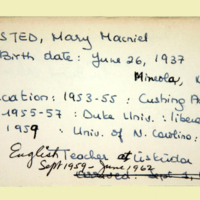 STED, Mary Macniel
Birth date: June 26, 1937
Mineola, N
cation: 1953-55: Cushing A
1955-57: Duke Univ.: libera
1959 : Univ. of N. Carolina:
English Teacher at Üsküda
Sept 1959 - June 1962